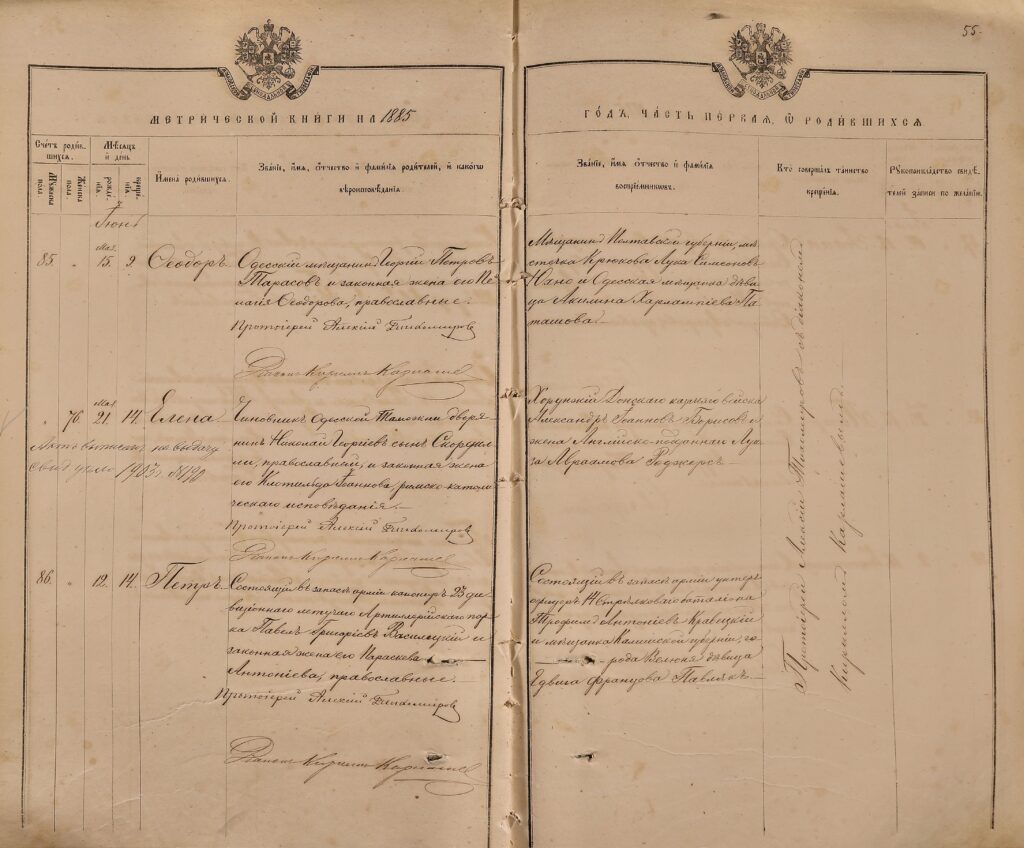 55.
МЕТРИЧЕСКОЙ КНИГИ НА 1885
ГОДЪ, ЧАСТЬ ПЕРВАЯ, Ѿ РОДИВШИХСЯ
Счетъ родив-
шихся.
Мужеска пола.
Женска пола.
Мѣсяцъ
и день
рожде-
нія.
креще-
нія.
Имена родившихся.
Званіе, имя, ѿтчество и фамилія родителей, и какогѡ
вѣроисповѣданія.
Званіе, имя, ѿтчество и фамилія
воспріемниковъ.
Кто совершалъ таинство
крещенія.
Рукоприкладство свидѣ-
телей записи по желанію.
Іюнь
85. " Мая 15. 9 Ѳеодоръ.
Одесскій мѣщанинъ Георгій Петровъ
Тарасов и законная жена его Пе-
лагія Ѳеодорова, православные.
Протоіерей Алексій
Кирилъ
Мѣщанинъ Полтавской губерніи, мѣ-
стечка Крюкова Лука Симеоновъ
и Одесская мѣщанка дѣви-
ца Акилина Харлампіева Па-
ташова
" 76. Мая 21. 14. Елена
выдачу
1903 г. №190
Чиновникъ Одесской Таможни дворя-
нинъ Николай Георгіевъ сынъ
православный, и законная жена
его Клотильда Іоаннова, римско-католи-
ческаго исповѣданія.
Протоіерей Алексій
Кирилъ
Хорунжій Донскаго казачьяго войска
Александръ Іоанновъ Борисовъ и
жена Англійско-подданная Луи-
за Авраамова Роджерсъ
86. " 12. 14. Петръ.
Состоящій въ запасѣ арміи канониръ 23 ди-
визіоннаго летучаго Артиллерійскаго пар-
ка Павелъ Григоріевъ Василецкій и
законная жена его Параскева
Антоніева, православные.
Протоіерей Алексій
Кирилъ
Состоящій въ запасѣ арміи унтеръ
офицеръ 14 Стрѣлковаго баталіона
Трофимъ Антоніевъ Кравецкій
и мѣщанка Калишской губерніи, го-
рода Велюня дѣвица
Ядвига Францова Павлякъ
Протоіерей Алексій съ діакономъ
Кирилломъ Карпашевымъ.